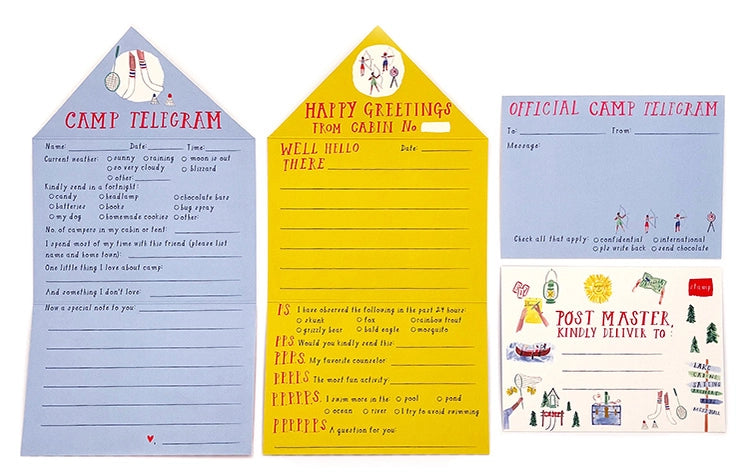 CAMP TELEGRAM
Name: Date: Time:
Current weather: sunny raining moon is out
so very cloudy blizzard
other:
Kindly send in a fortnight:
candy headlamp chocolate bars
batteries books bug spray
my dog homemade cookies other:
No. of campers in my cabin or tent:
I spend most of my time with this friend (please list
name and home town):
One little thing I love about camp:
And something I don't love:
Now a special note to you:
HAPPY GREETINGS
FROM CABIN No.
WELL HELLO Date:
THERE
P.S. I have observed the following in the past 24 hours:
skunk fox rainbow trout
grizzly bear bald eagle mosquito
PPS Would you kindly send this:
PPPS. My favorite counselor:
PPPPS The most fun activity:
PPPPPS. I swim more in the: pool pond
ocean river I try to avoid swimming
PPPPPPS A question for you:
OFFICIAL CAMP TELEGRAM
To: From:
Message:
Check all that apply: confidential international
pls write back send chocolate
stamp
POST MASTER,
KINDLY DELIVER TO:
LAKE
CABINS
SAILING
MESS HALL
CAMP